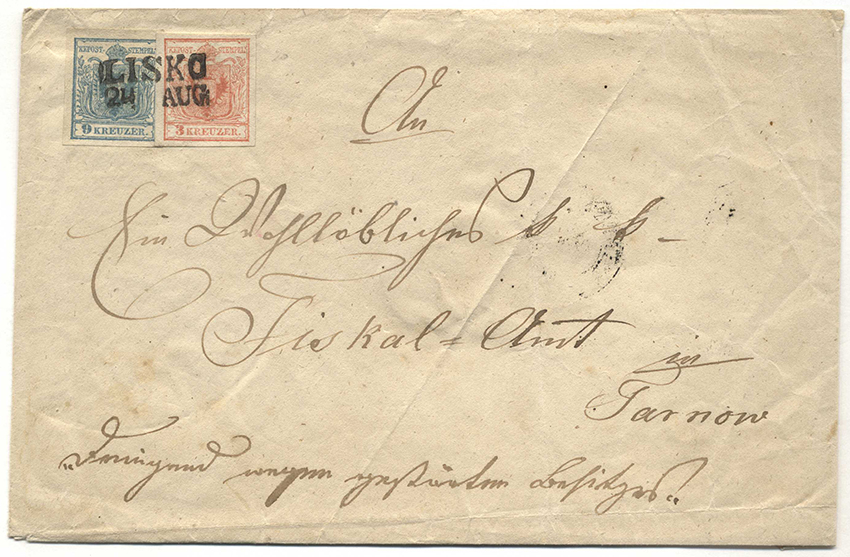 KKPOST-STEMPEL
9 KREUZER.
KKPOST-STEMPEL
3 KREUZER.
LISKO
24 AUG:
An
Ein Wohllöbliches k k-
Fiskal=Amt
in
Tarnow
„Dringend wegen gestörten Besitzes."